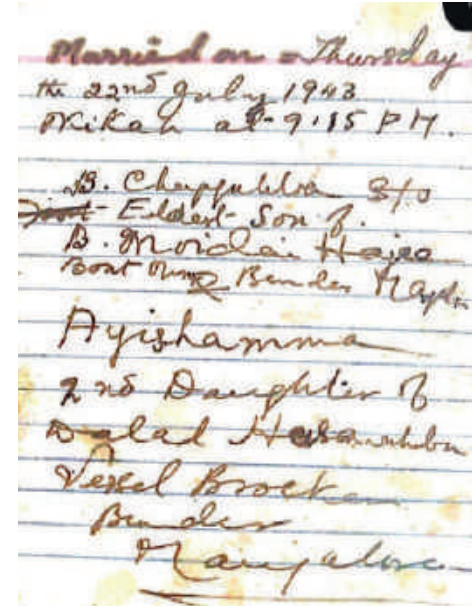 Married on - Thursday
the 22nd July 1943
Nikah at 9.15 P.M.
B. S/o
Eldest Son of.
B. Moidin
Boat Owner Bunder
Ayishamma
2nd Daughter of
Dalal
Vessel Broker
Bunder
Mangalore